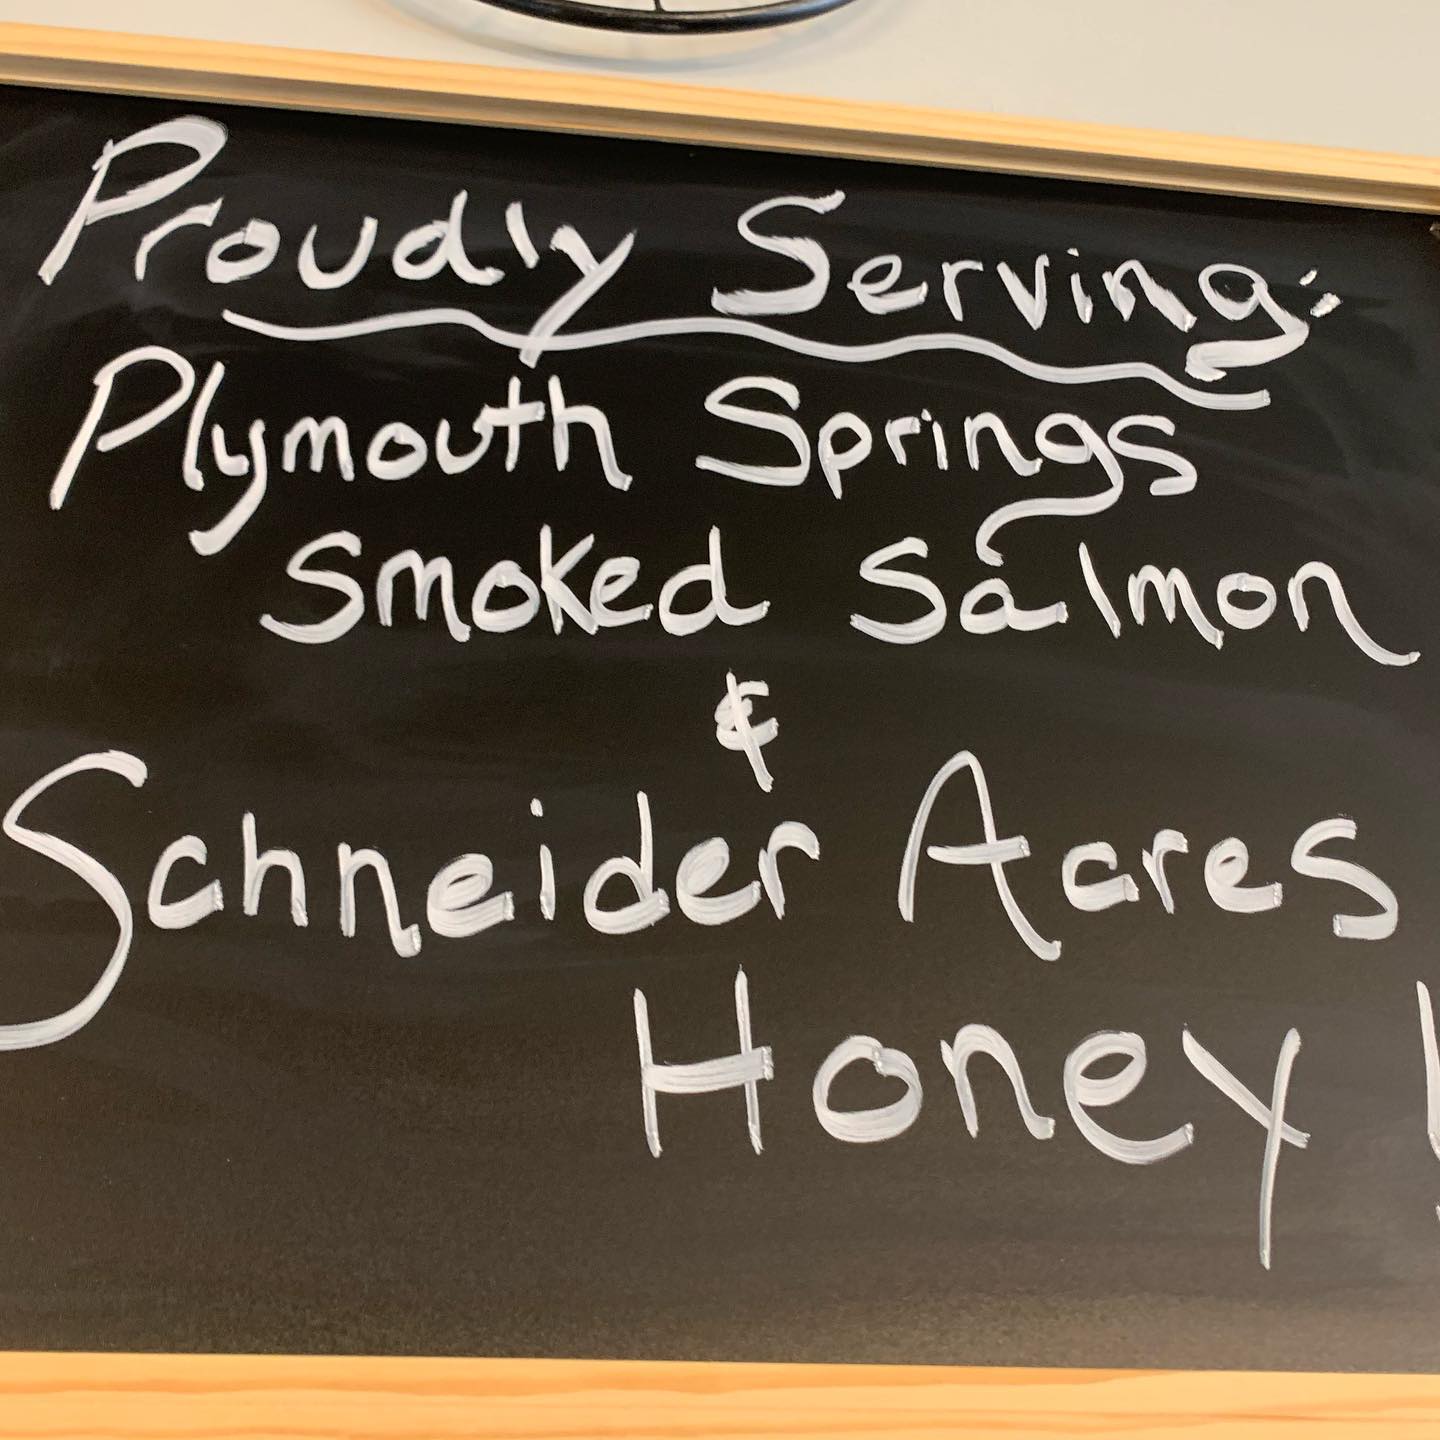 Proudly Serving:
Plymouth Springs
Smoked Salmon
&
Schneider Acres
Honey!